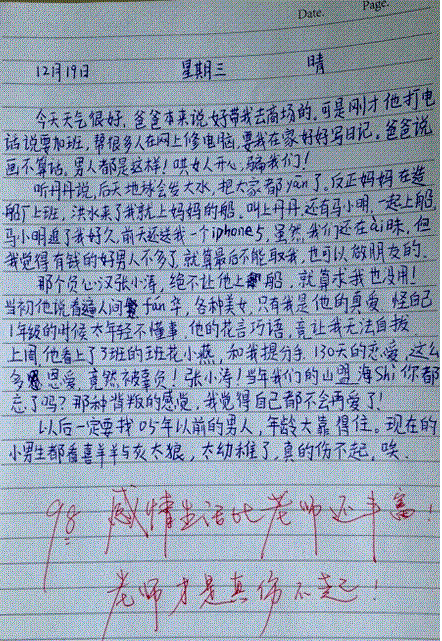 Date. Page.
12月19日 星期三 晴
今天天气很好，爸爸本来说好带我去商场的，可是刚才他打电
话说要加班，帮很多人在网上修电脑，要我在家好好写日记。爸爸说
画不算话，男人都是这样！哄女人开心，骗我们！
听丹丹说，后天地球会发大水，把大家都yān了，反正妈妈在造
船厂上班，洪水来了我就上妈妈的船。叫上丹丹，还有马小明，一起上船，
马小明追了我好久，前天还送我一个iphone5，虽然我们还在ài昧，但
我觉得有钱的好男人不多了，就算最后不能取我，也可以做朋友的。
那个负心汉张小涛，绝不让他上船，就算求我也没用！
当初他说看遍人间fán华，各种美女，只有我是他的真爱，怪自己
1年级的时候太年轻不懂事，他的花言巧语，竟让我无法自拔
上周他看上了3班的班花小燕，和我提分手，130天的恋爱，这么
多恩爱，竟然被辜负！张小涛！当年我们的山盟海Shi你都
忘了吗？那种背叛的感觉，我觉得自己都不会再爱了！
以后一定要找05年以前的男人，年龄大靠得住。现在的
小男生都看喜羊羊与灰太狼，太幼稚了，真的伤不起，唉．
98 感情生活比老师还丰富！
老师才是真伤不起！